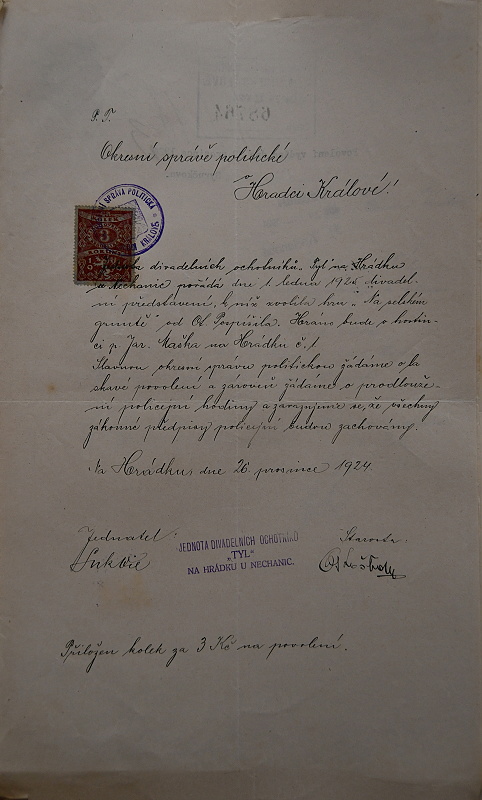 P. T.
Okresní správě politické
v Hradci Králové!
SPRÁVA POLITICKÁ
KOLEK
3
divadelních ochotníků „Tyl" na Hrádku
u Nechanic pořádá dne 1. ledna 1925 divadel-
ní představení, k níž zvolila hru „Na selském
gruntě" od Ot. Pospíšila. Hráno bude v hostin-
ci p. Jar. Maška na Hrádku č. 1
Slavnou okresní správu politickou žádáme o la-
skavé povolení a zároveň žádáme o prodlouže-
ní policejní hodiny a zavazujeme se, že všechny
zákonné předpisy policejní budou zachovány.
Na Hrádku, dne 26. prosince 1924.
Jednatel: Starosta:
JEDNOTA DIVADELNÍCH OCHOTNÍKŮ
„TYL"
NA HRÁDKU U NECHANIC.
Přiložen kolek za 3 Kč na povolení.